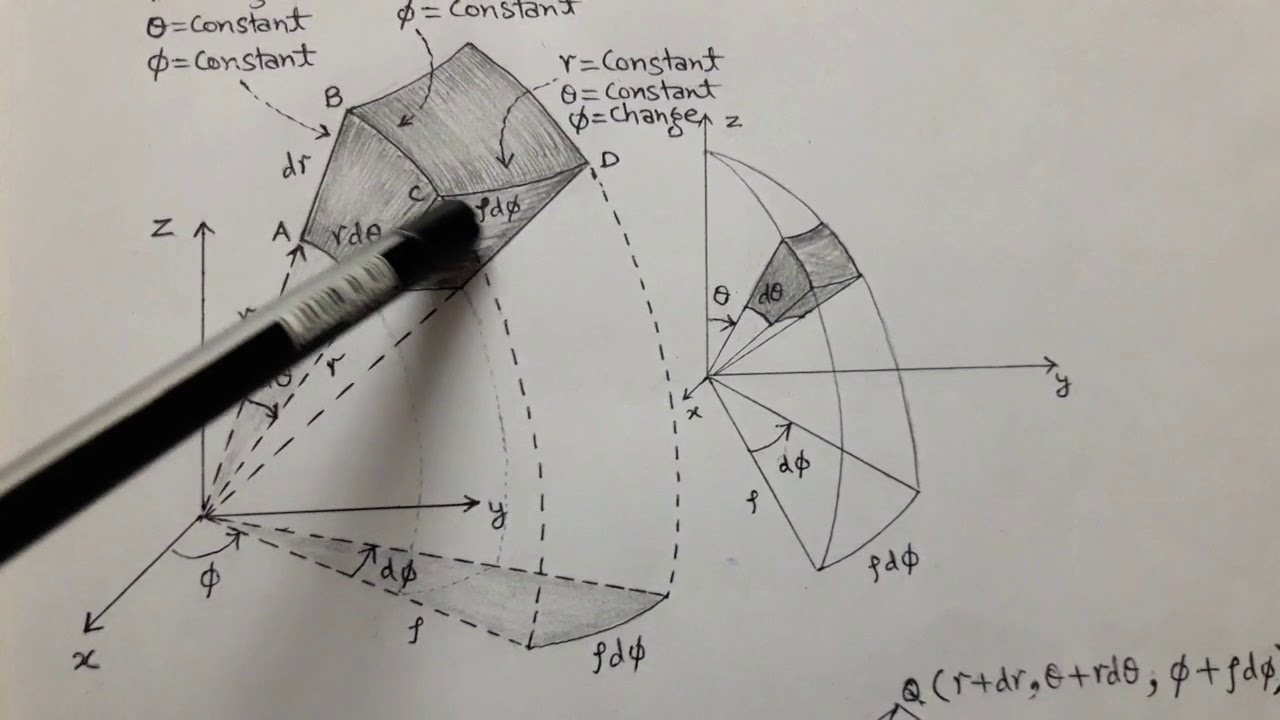 θ=Constant
ϕ=Constant
ϕ=Constant
r=Constant
θ=Constant
ϕ=Change
B
dr
C
D
ρdϕ
A
rdθ
z
r
y
ϕ
dϕ
ρ
ρdϕ
x
z
θ
dθ
x
y
dϕ
ρ
ρdϕ
Q (r+dr, θ+rdθ, ϕ+ρdϕ)